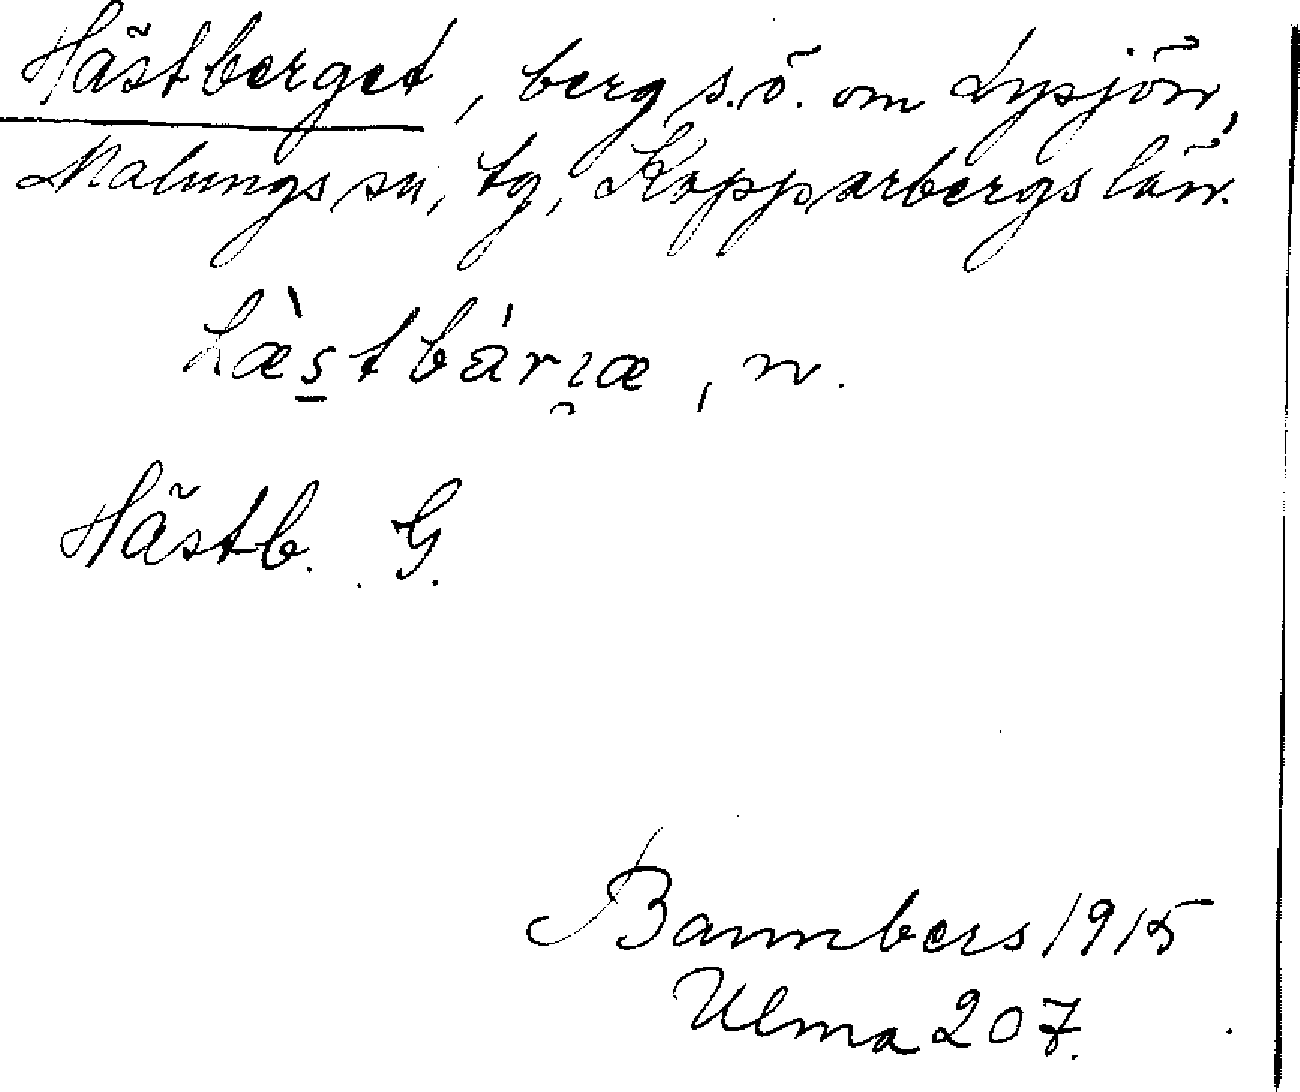 Hästberget, berg s.ö. om Lysjön,
Malungs sn, tg, Kopparbergs län.
n.
Hästb. G.
Bannbers 1915
Ulma 207.